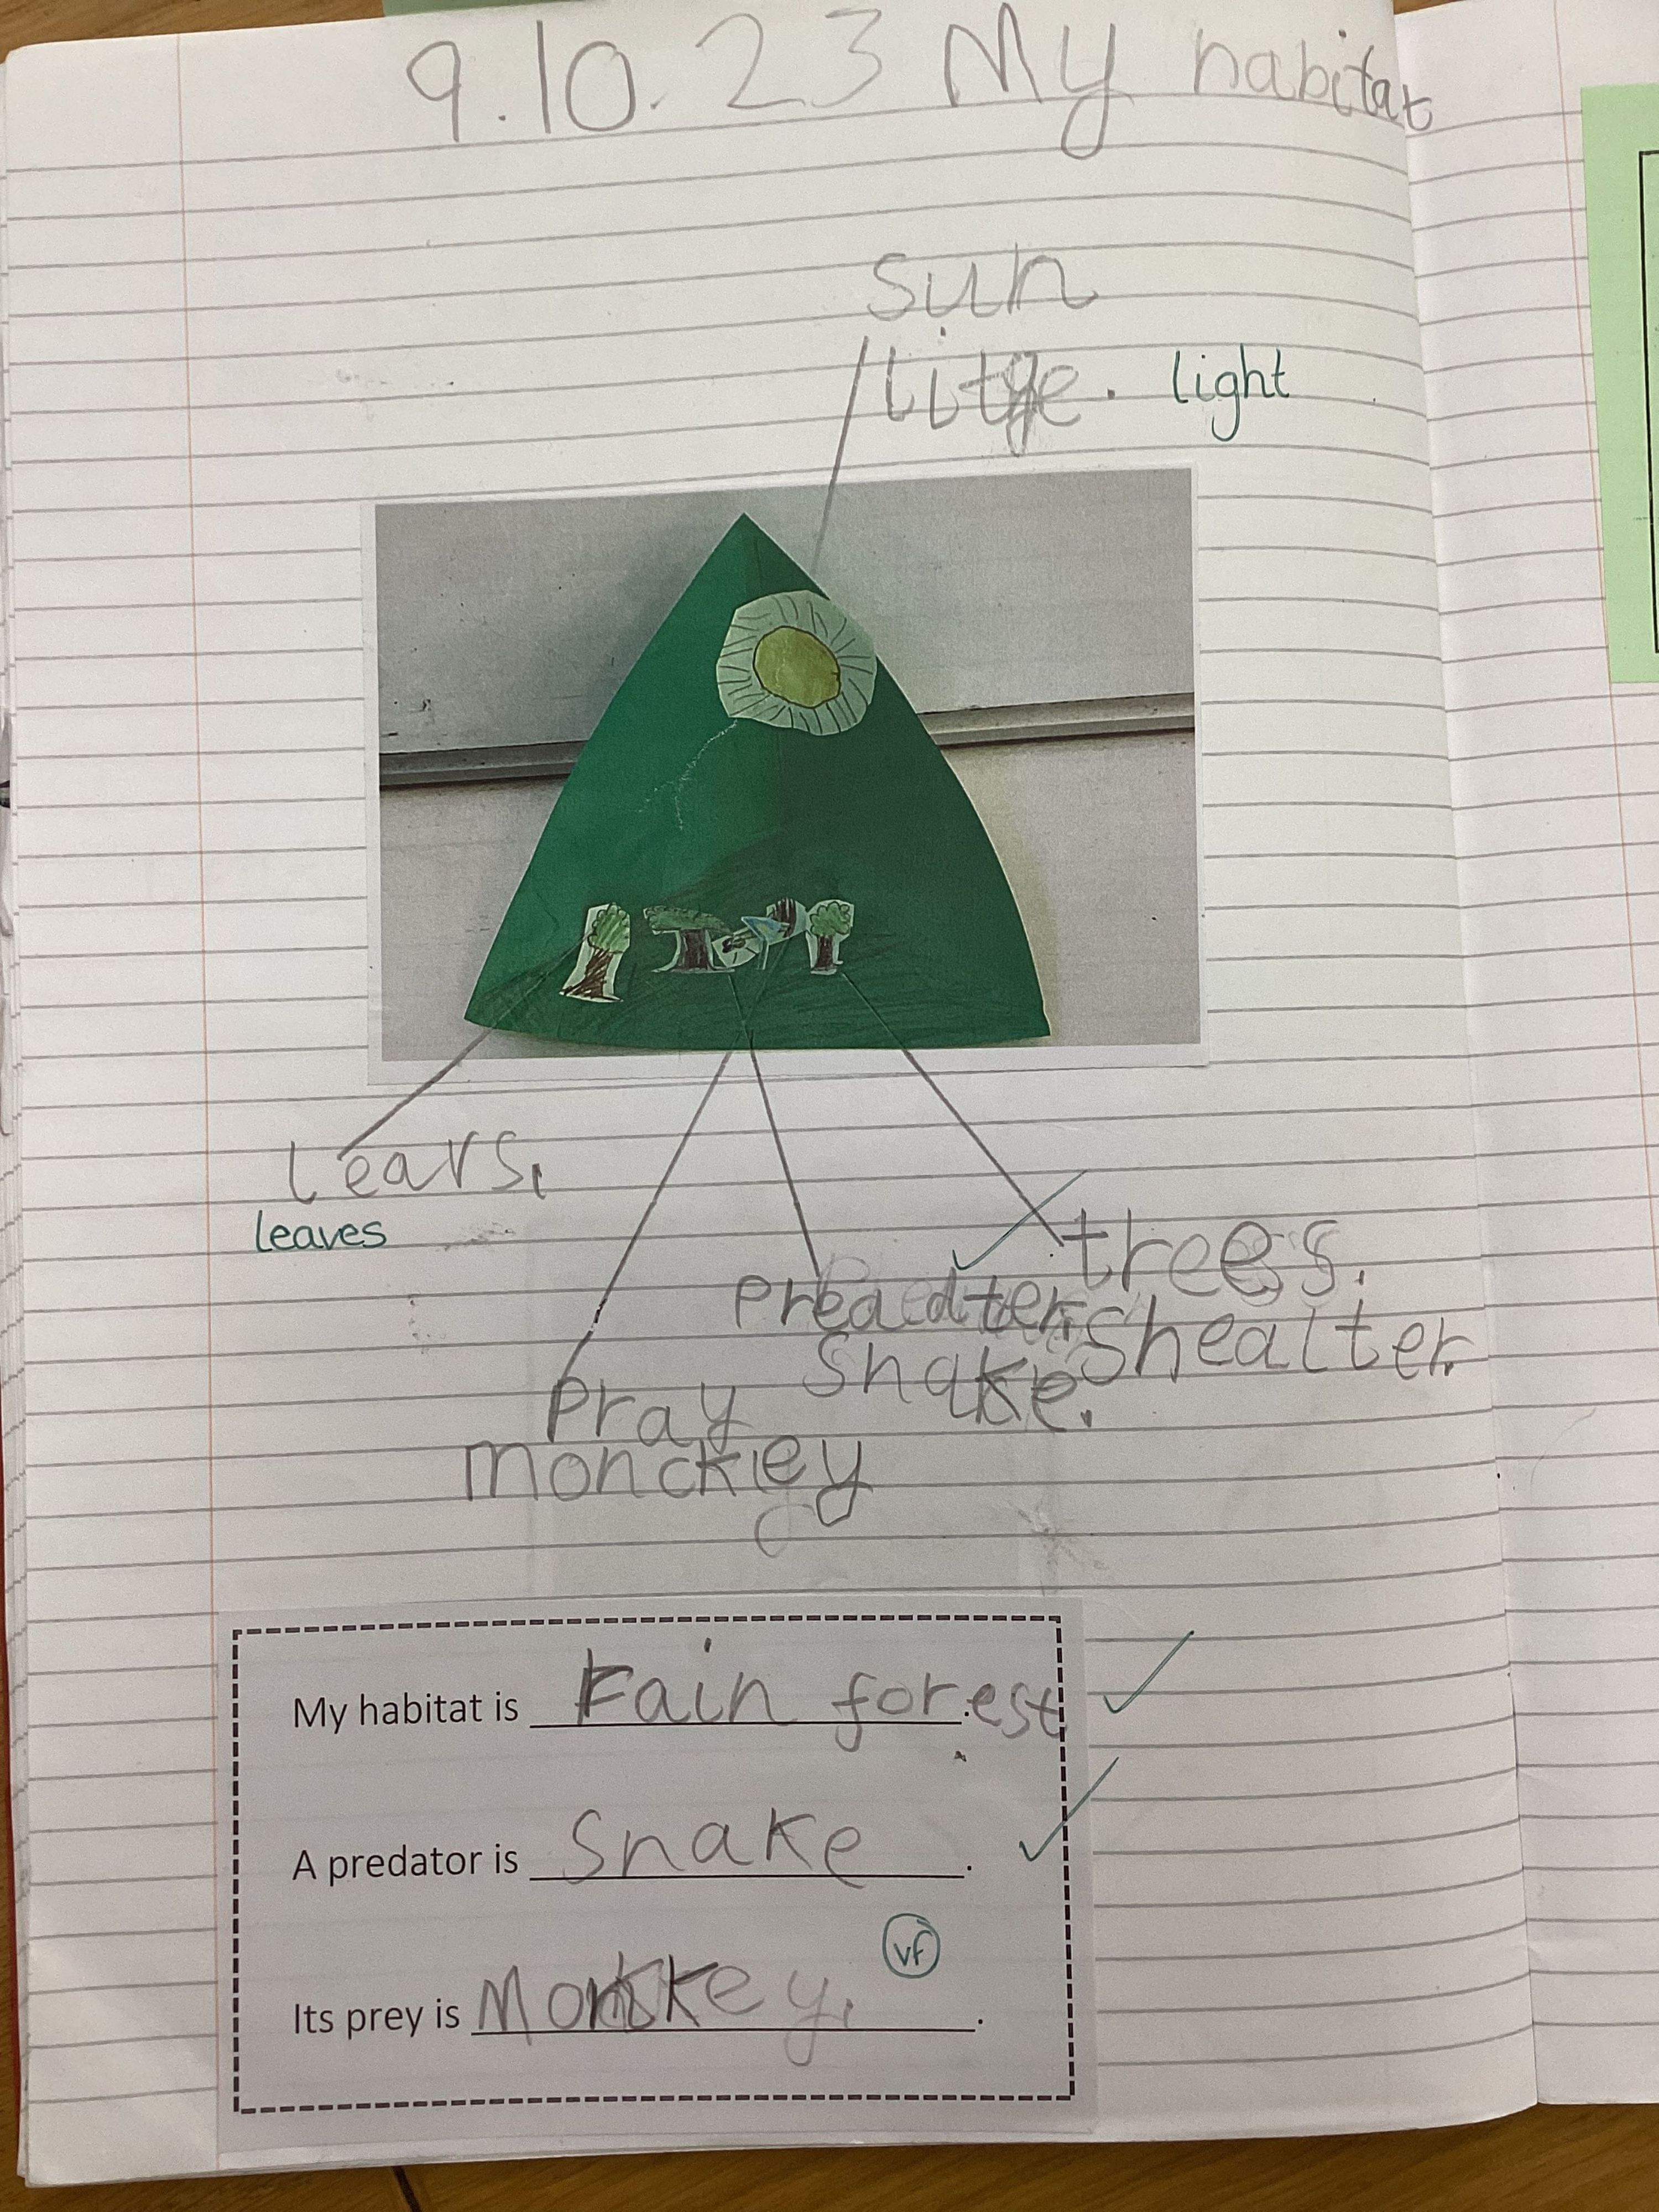 9.10.23 My habitat
sun
litge. light
lears.
leaves
trees.
preadter. shealter.
snake.
pray
monckey
My habitat is Rain forest.
A predator is Snake.
Its prey is Monkey.
vf